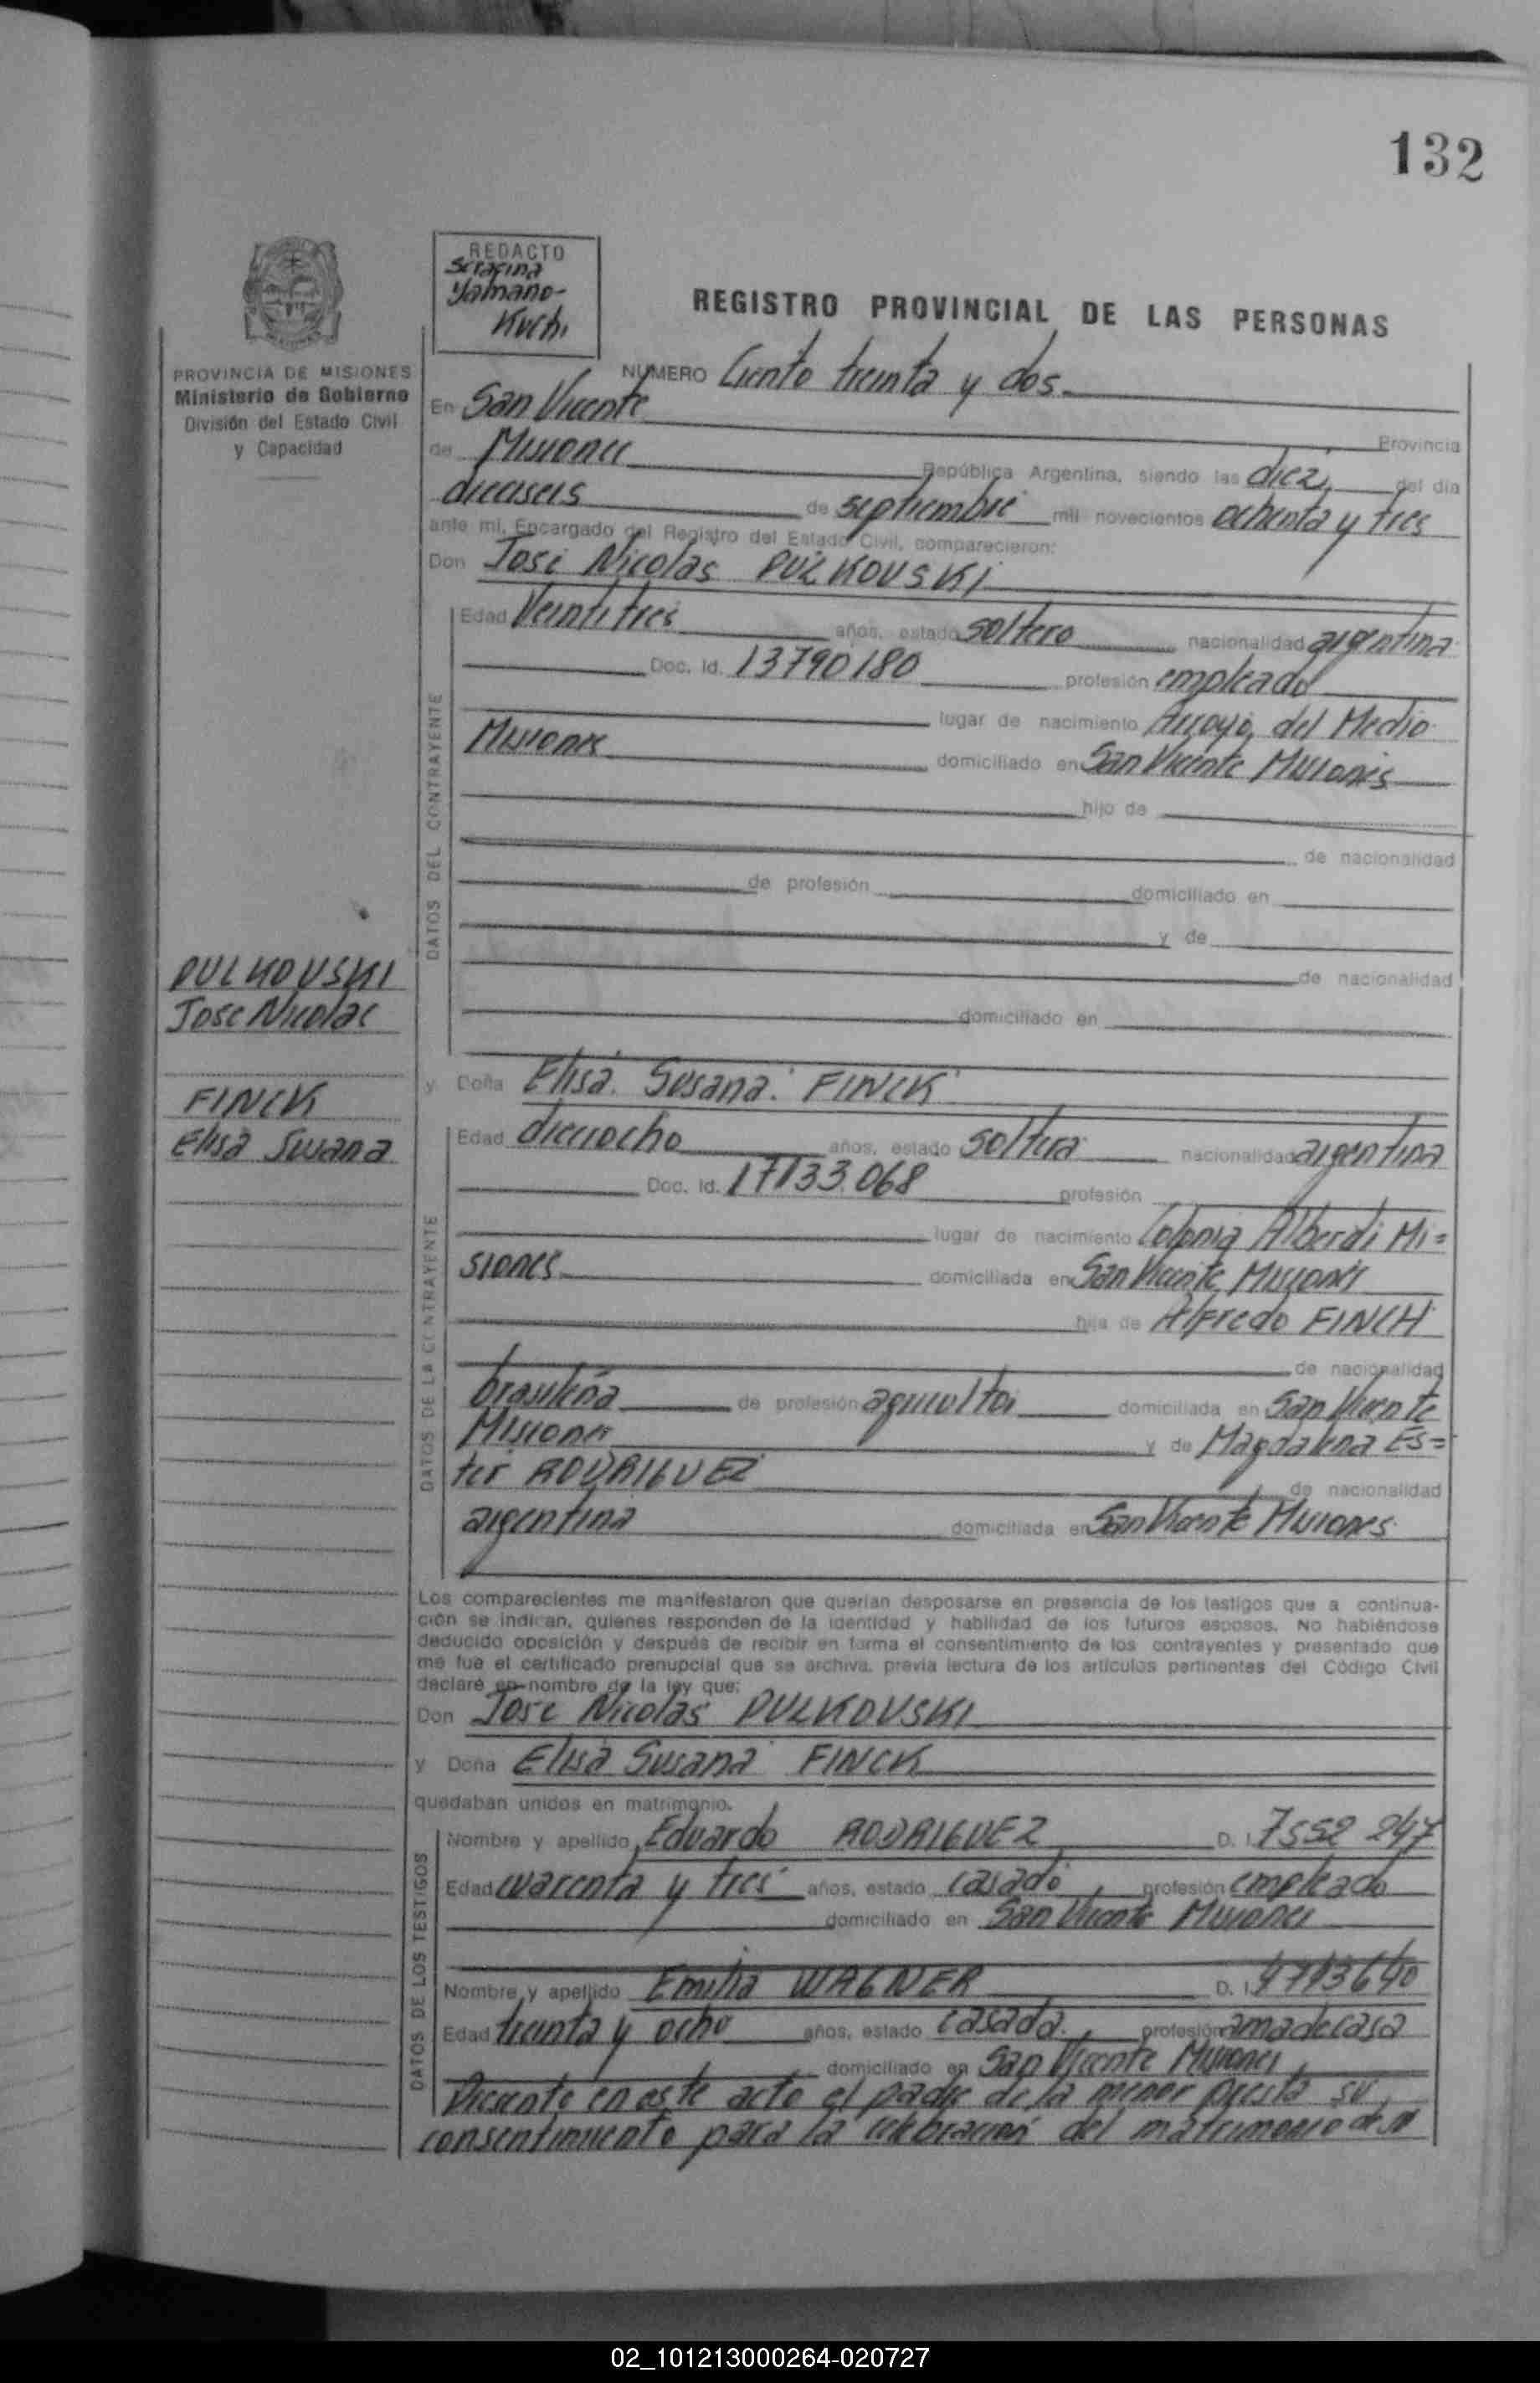 132
REDACTO
Serafina
Yamano-
Kuchi
REGISTRO PROVINCIAL DE LAS PERSONAS
PROVINCIA DE MISIONES
Ministerio de Gobierno
División del Estado Civil
y Capacidad
NUMERO Ciento treinta y dos
En San Vicente
Provincia
de Misiones República Argentina, siendo las diez, del día
dieciseis de septiembre mil novecientos ochenta y tres
ante mi, Encargado del Registro del Estado Civil, comparecieron:
Don José Nicolas PULKOVSKI
DATOS DEL CONTRAYENTE
Edad Veintitres años, estado soltero nacionalidad argentina
Doc. Id. 13790180 profesión empleado
lugar de nacimiento Arroyo del Medio
Misiones domiciliado en San Vicente Misiones
hijo de
de nacionalidad
de profesión domiciliado en
y de
de nacionalidad
domiciliado en
PULKOVSKI
Jose Nicolas
FINCK
Elisa Susana
y Doña Elisa Susana FINCK
DATOS DE LA CONTRAYENTE
Edad dieciocho años, estado soltera nacionalidad argentina
Doc. Id. 17133.068 profesión
lugar de nacimiento Colonia Alberdi Mi=
siones domiciliada en San Vicente Misiones
hija de Alfredo FINCH
de nacionalidad
brasileña de profesión agricultor domiciliada en San Vicente
Misiones y de Magdalena Es=
ter RODRIGUEZ
de nacionalidad
argentina domiciliada en San Vicente Misiones
Los comparecientes me manifestaron que querían desposarse en presencia de los testigos que a continua-
ción se indican, quienes responden de la identidad y habilidad de los futuros esposos. No habiéndose
deducido oposición y después de recibir en forma el consentimiento de los contrayentes y presentado que
me fue el certificado prenupcial que se archiva, previa lectura de los artículos pertinentes del Código Civil
declaré en nombre de la ley que:
Don Jose Nicolas PULKOVSKI
y Doña Elisa Susana FINCK
quedaban unidos en matrimonio.
DATOS DE LOS TESTIGOS
Nombre y apellido Eduardo RODRIGUEZ D. I. 7552 247
Edad cuarenta y tres años, estado casado, profesión empleado
domiciliado en San Vicente Misiones
Nombre y apellido Emilia WAGNER D. I. 4713640
Edad treinta y ocho años, estado casada, profesión ama de casa
domiciliado en San Vicente Misiones,
Presente en este acto el padre de la menor presta su
consentimiento para la celebración del matrimonio de su
02_101213000264-020727